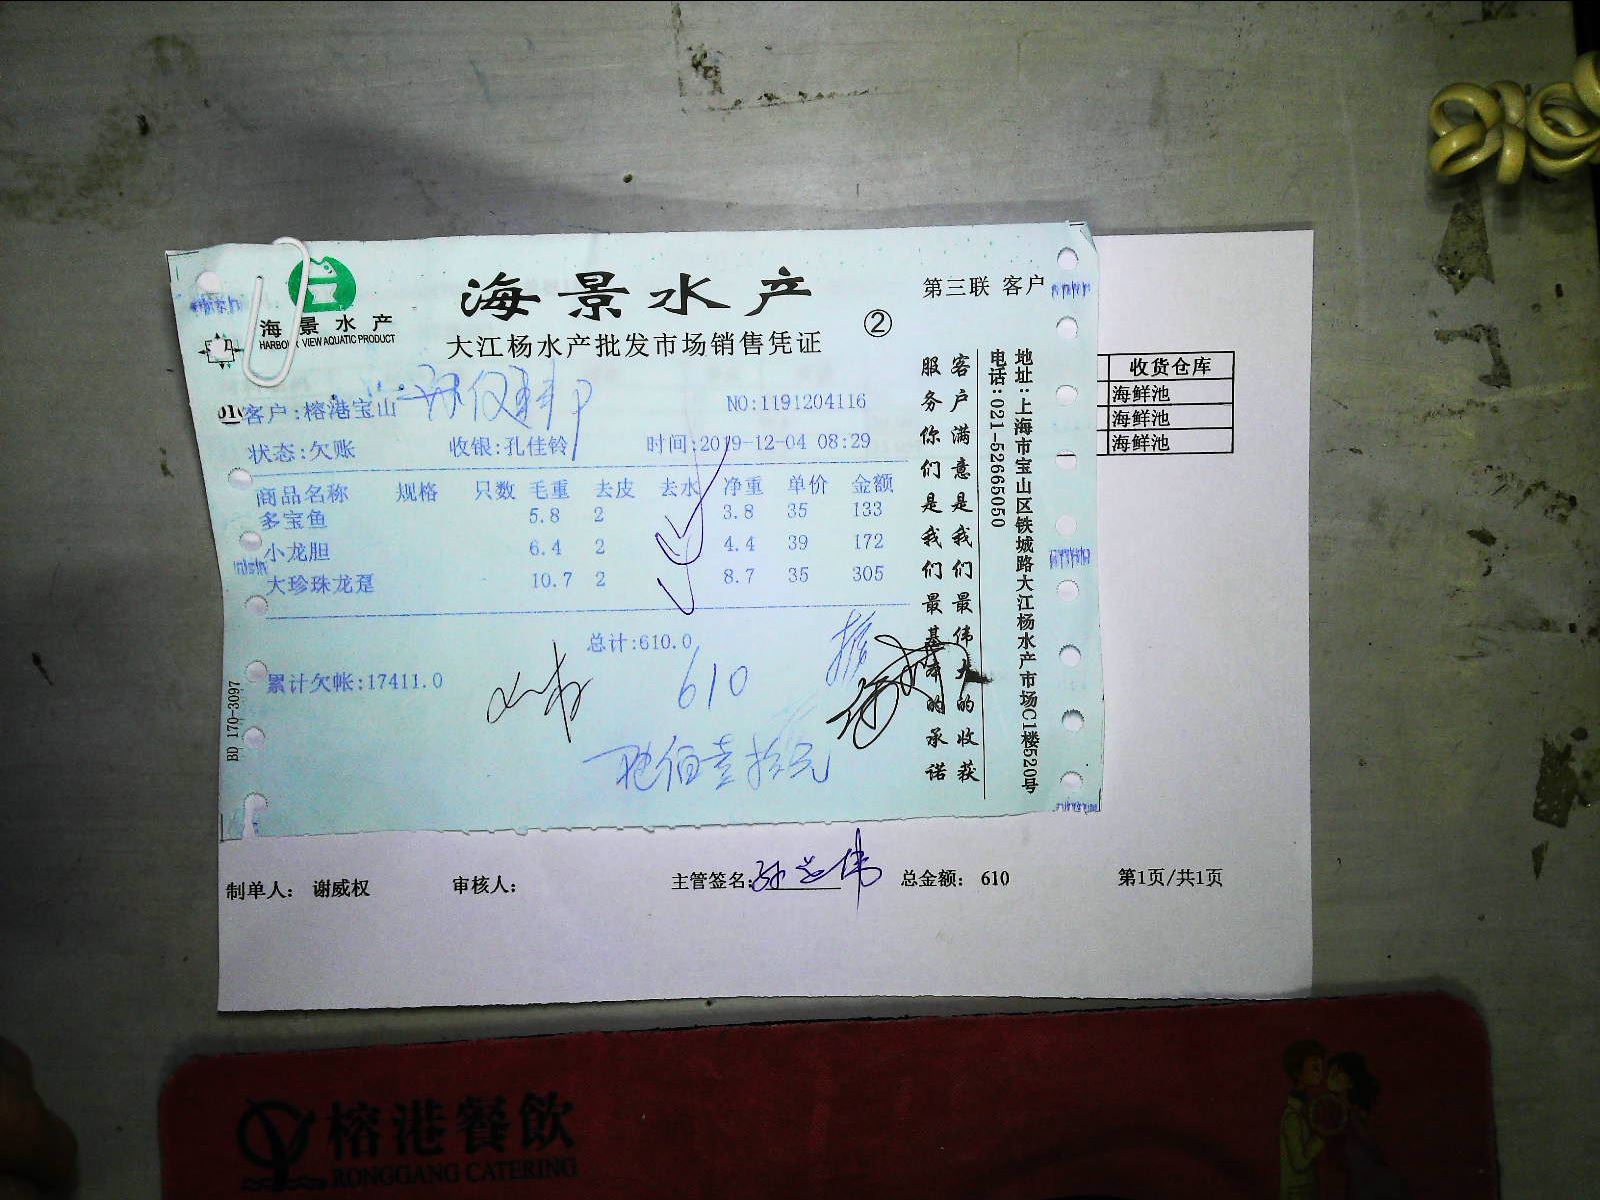 海景水产
HARBOUR VIEW AQUATIC PRODUCT
海景水产
大江杨水产批发市场销售凭证
②
第三联 客户
客户:榕港宝山
NO:1191204116
状态:欠账 收银:孔佳铃 时间:2019-12-04 08:29
商品名称 规格 只数 毛重 去皮 去水 净重 单价 金额
多宝鱼 5.8 2 3.8 35 133
小龙胆 6.4 2 4.4 39 172
大珍珠龙趸 10.7 2 8.7 35 305
总计:610.0
累计欠帐:17411.0
610
陆佰壹拾元
BD 170-3097
客户满意是我们最伟大的收获
服务你们是我们最基本的承诺
地址:上海市宝山区铁城路大江杨水产市场C1楼520号
电话:021-52665050
收货仓库
海鲜池
海鲜池
海鲜池
制单人: 谢威权 审核人: 主管签名: 总金额: 610 第1页/共1页
榕港餐飲
RONGGANG CATERING